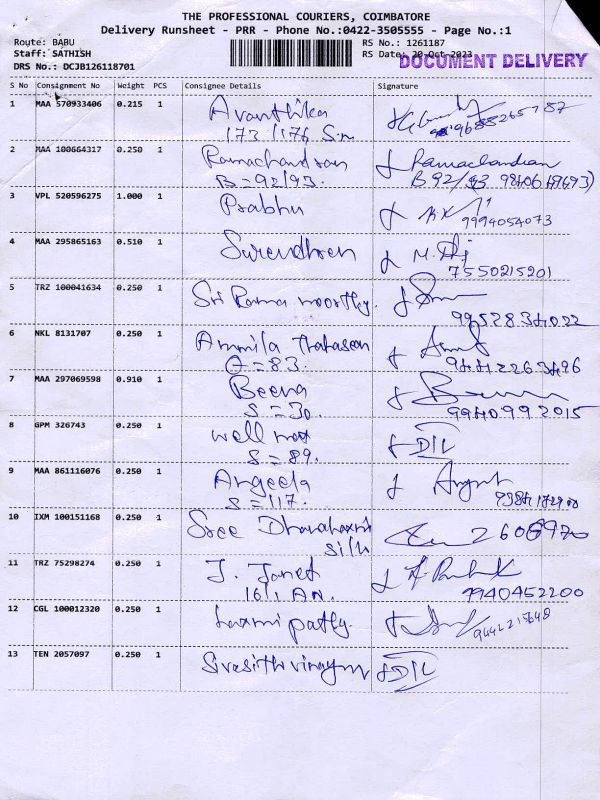 THE PROFESSIONAL COURIERS, COIMBATORE
Delivery Runsheet - PRR - Phone No.:0422-3505555 - Page No.:1
Route: BABU
Staff: SATHISH
DRS No.: DCJB126118701
RS No.: 1261187
RS Date: 20-Oct-2023
DOCUMENT DELIVERY
S No Consignment No Weight PCS Consignee Details Signature
1 MAA 570933406 0.215 1 Avanthika
173/176 S.n 9688265787
2 MAA 100664317 0.250 1 Ramachandran Ramachandian
B=92/93. B 92/93
3 VPL 520596275 1.000 1 Prabhu
9994054073
4 MAA 295865163 0.510 1 Surendhren
7550215201
5 TRZ 100041634 0.250 1 Sri Rama moorthy.
9952834022
6 NKL 8131707 0.250 1 Ammila
=83. 94412263496
7 MAA 297069598 0.910 1 Beena
S=30. 9940992015
8 GPM 326743 0.250 1 well D/L
S=89.
9 MAA 861116076 0.250 1 Angeela
S=117.
10 IXM 100151168 0.250 1 Sree
silk
11 TRZ 75298274 0.250 1 J. Janet
9940452200
12 CGL 100012320 0.250 1 Laxmi pathy.
9442215648
13 TEN 2057097 0.250 1 D/L